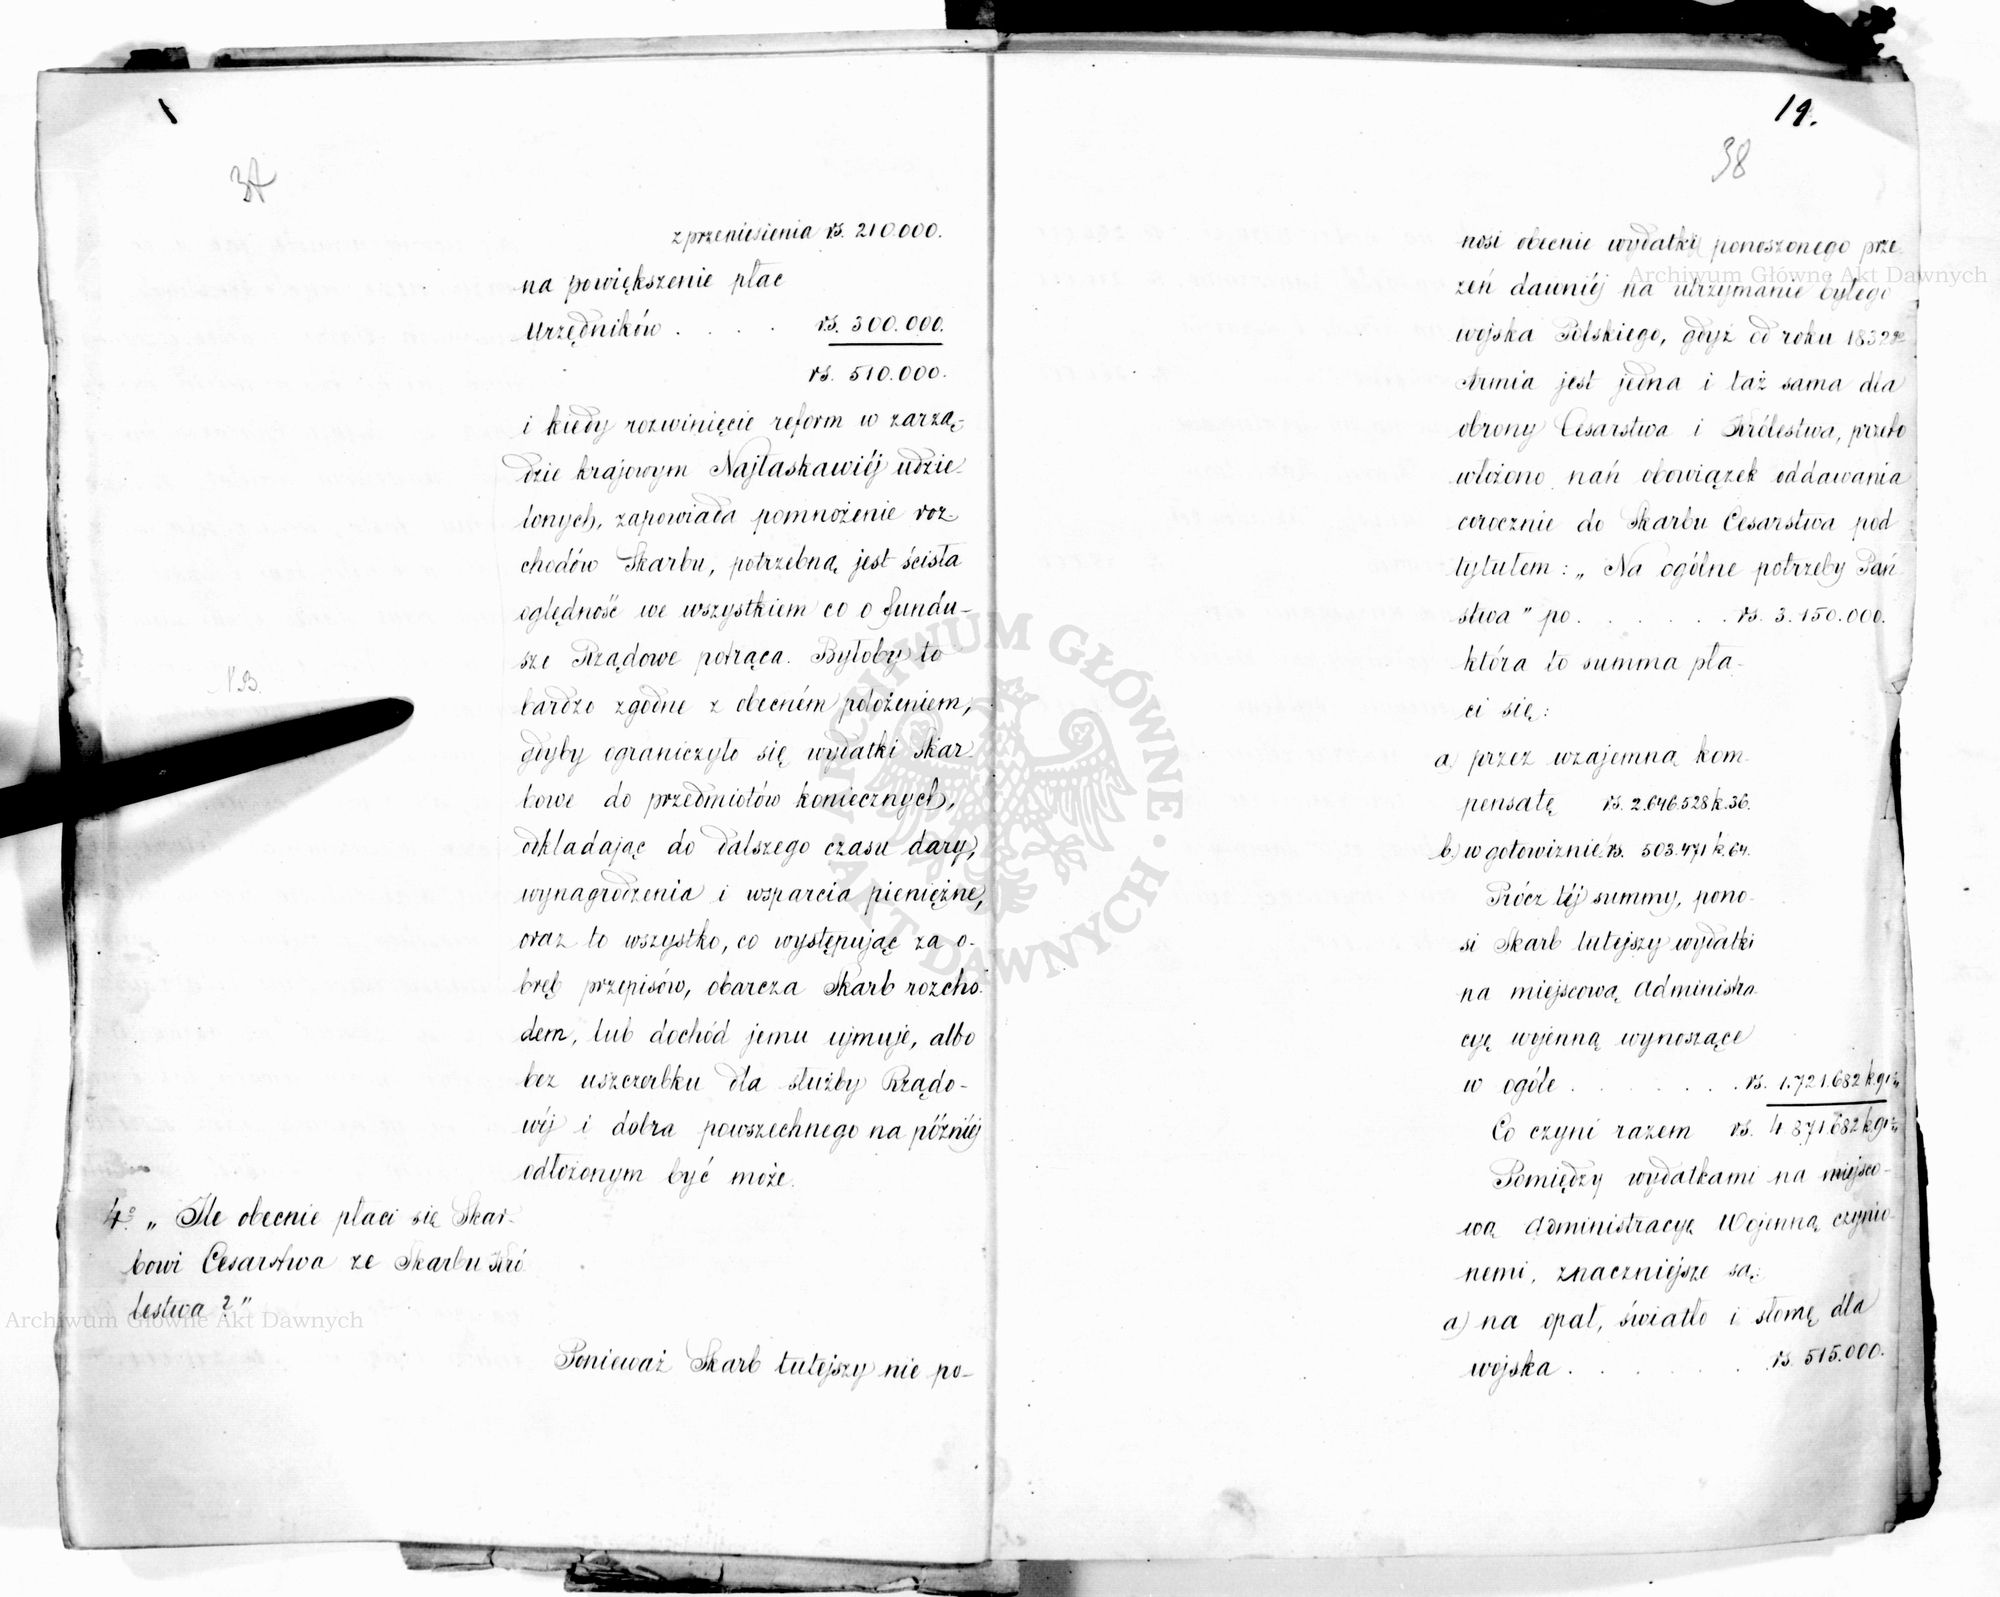 37
z przeniesienia rs. 210.000.
na powiększenie płac
Urzędników . . . . rs. 300.000.
rs. 510.000.
i kiedy rozwinięcie reform w zarzą-
dzie krajowym Najłaskawiéj udzie-
lonych, zapowiada pomnożenie roz-
chodów Skarbu, potrzebną jest ścisła
oględność we wszystkiem co o fundu-
sze Rządowe potrąca. Byłoby to
NB.
bardzo zgodne z obecném położeniem,
gdyby ograniczyło się wydatki Skar-
bowe do przedmiotów koniecznych,
odkładając do dalszego czasu dary,
wynagrodzenia i wsparcia pieniężne,
oraz to wszystko, co występując za o-
bręb przepisów, obarcza Skarb rozcho-
dem, lub dochód jemu ujmuje, albo
bez uszczerbku dla służby Rządo-
wéj i dobra powszechnego na późniéj
odłożonym być może.
4º „ Ile obecnie płaci się Skar-
bowi Cesarstwa ze Skarbu Kró-
lestwa ? ”
Ponieważ Skarb tutejszy nie po-
19.
38
nosi obecnie wydatki ponoszonego prze-
zeń dawniéj na utrzymanie byłego
wojska Polskiego, gdyż od roku 1832go
Armia jest jedna i taż sama dla
obrony Cesarstwa i Królestwa, przeto
włożono nań obowiązek oddawania
corocznie do Skarbu Cesarstwa pod
tytułem : „ Na ogólne potrzeby Pań-
stwa ” po . . . . . . rs. 3.150.000.
która to summa pła-
ci się:
a) przez wzajemną kom-
pensatę rs. 2.646.528 k. 36.
b) w gotowiznie rs. 503.471 k. 64.
Prócz téj summy, pono-
si Skarb tutejszy wydatki
na miejscową Administra-
cyę wojenną wynoszące
w ogóle . . . . . . rs. 1.721.682 k. 91½
Co czyni razem rs. 4.871.682 k. 91½
Pomiędzy wydatkami na miejsco-
wą Administracyę Wojenną czynio-
nemi, znaczniejsze są:
a) na opał, światło i słomę dla
wojska . . . . . . rs. 515.000.
Archiwum Główne Akt Dawnych
Archiwum Główne Akt Dawnych
ARCHIWUM GŁÓWNE · AKT DAWNYCH ·